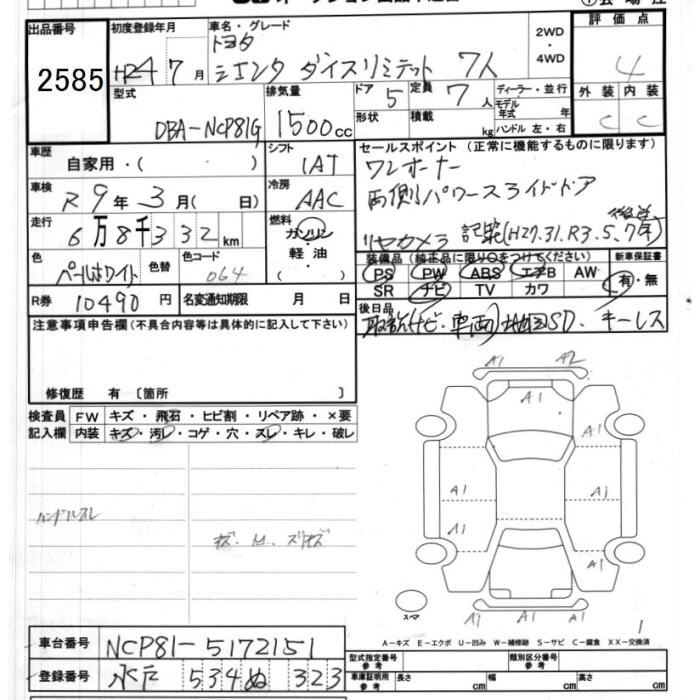 出品番号 初度登録年月 車名・グレード 2WD・4WD 評価点
2585 H24 7月 トヨタ シエンタ ダイスリミテッド 7人 4
型式 排気量 ドア 定員 ディーラー・並行 外装 内装
DBA-NCP81G 1500cc 5 7人 モデル年式 年 C C
形状 積載 kg ハンドル 左・右
車歴 自家用・( ) シフト 1AT セールスポイント(正常に機能するものに限ります)
ワンオーナー
車検 R9年3月( 日) 冷房 AAC 両側パワースライドドア
走行 6万8千332km 燃料 ガソリン・軽油・( ) リヤカメラ
色 パールホワイト 色替 色コード 064 装備品(純正品に限り○をつけてください) 新車保証書
PS PW ABS エアB AW 有・無
SR ナビ TV カワ
R券 10490円 名変通知期限 月 日 後日品
注意事項申告欄(不具合内容等は具体的に記入して下さい) 地図SD、キーレス
修復歴 有〔箇所 〕
検査員記入欄 FW キズ・飛石・ヒビ割・リペア跡・×要
内装 キズ・汚レ・コゲ・穴・スレ・キレ・破レ
A1 A2
A1
A1
A1 A1
A1
A1 A1
ハンドルスレ
スペア
A1 A1
A-キズ E-エクボ U-凹み W-補修跡 S-サビ C-腐食 XX-交換済
車台番号 NCP81-5172151
型式指定番号参考 類別区分番号参考
登録番号 水戸 534 ぬ 323
車庫証明用参考 長さ cm 幅 cm 高さ cm